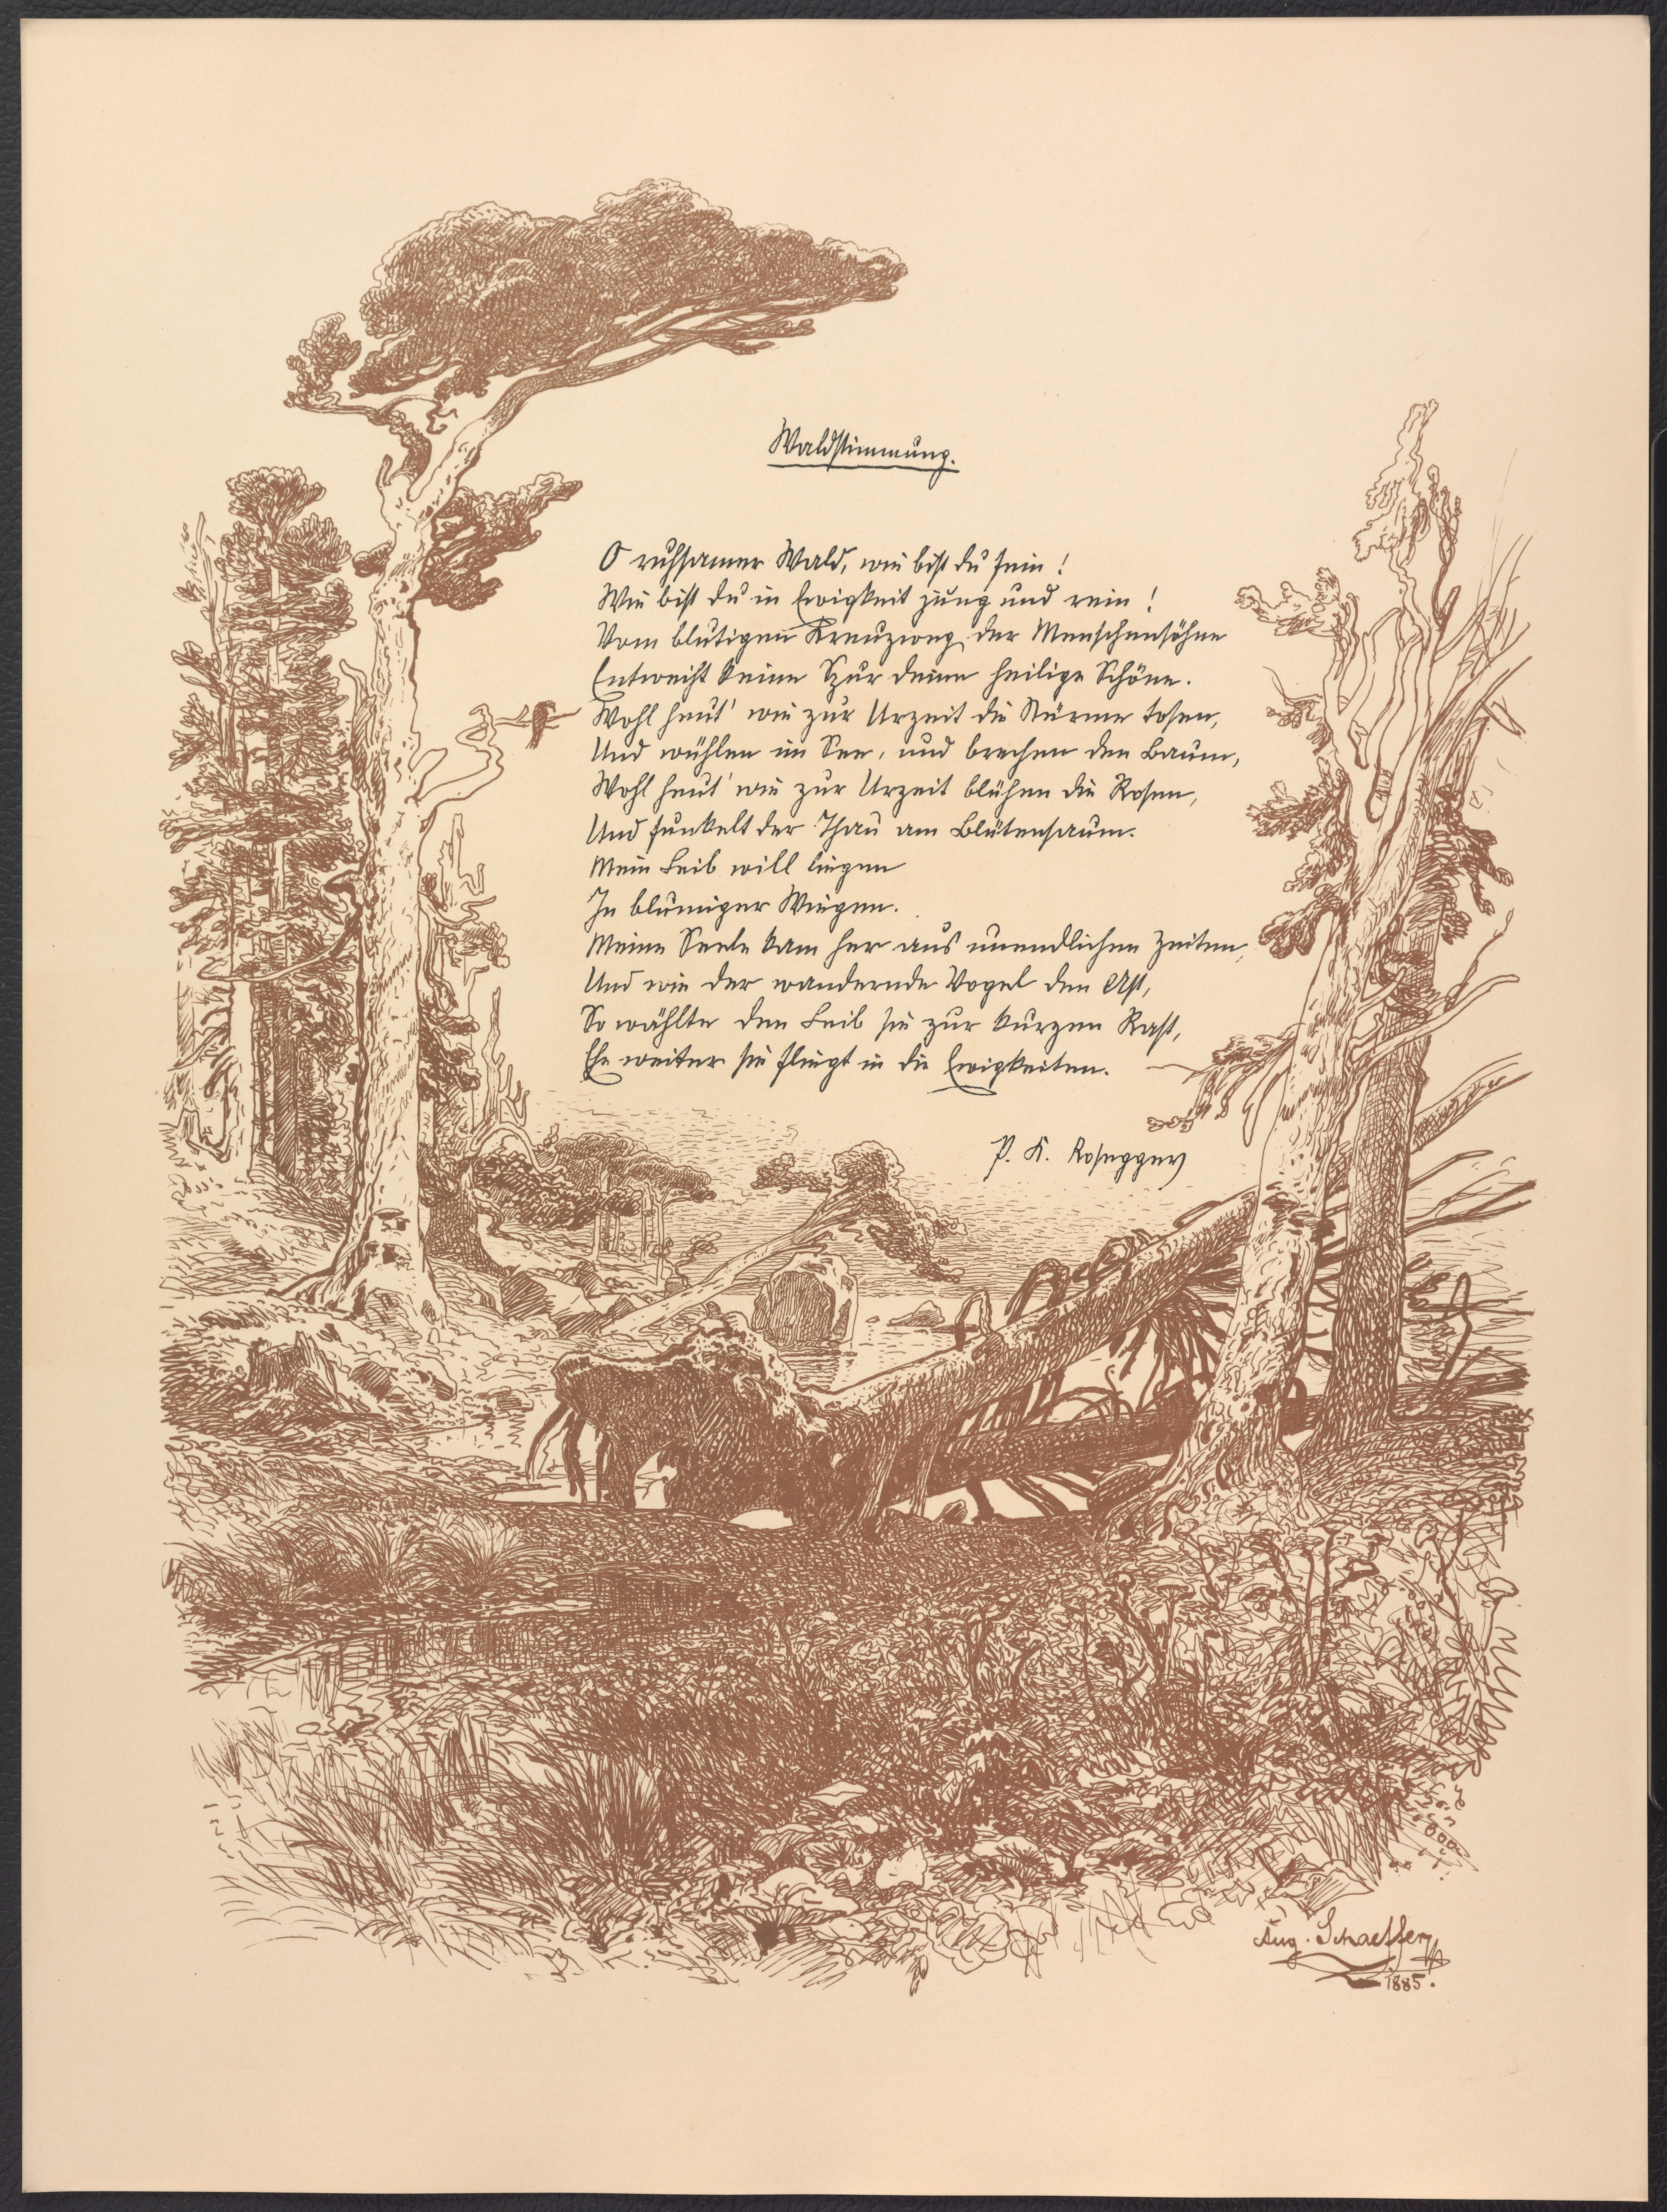 Waldstimmung.
O ruhsamer Wald, wie bist du fein!
Wie bist du in Ewigkeit jung und rein!
Vom blutigen Kreuzweg der Menschensöhne
Entweiht keine Spur deine heilige Schöne.
Wohl heut' wie zur Urzeit die Stürme tosen,
Und wühlen im See, und brechen den Baum,
Wohl heut' wie zur Urzeit blühen die Rosen,
Und funkelt der Thau am Blütensaum.
Mein Leib will liegen
In blumigen Wiegen.
Meine Seele kam her aus unendlichen Zeiten,
Und wie der wandernde Vogel den Ast,
So wählte den Leib sie zur kurzen Rast,
Ehe weiter sie fliegt in die Ewigkeiten.
P. K. Rosegger
Aug. Schaeffer
1885.